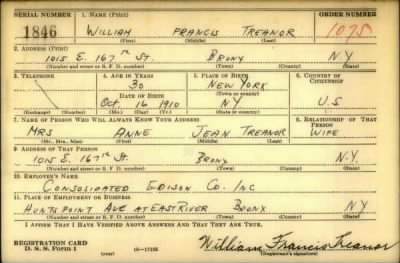 SERIAL NUMBER 1. NAME (Print) ORDER NUMBER
1846 WILLIAM FRANCIS TREANOR 1075
(First) (Middle) (Last)
2. ADDRESS (Print)
1015 E. 167TH ST. BRONX N.Y
(Number and street or R. F. D. number) (Town) (County) (State)
3. TELEPHONE 4. AGE IN YEARS 5. PLACE OF BIRTH 6. COUNTRY OF CITIZENSHIP
30 NEW YORK
(Town or county)
DATE OF BIRTH
OCT. 16 1910 NY U.S
(Exchange) (Number) (Mo.) (Day) (Yr.) (State or country)
7. NAME OF PERSON WHO WILL ALWAYS KNOW YOUR ADDRESS 8. RELATIONSHIP OF THAT PERSON
MRS ANNE JEAN TREANOR WIFE
(Mr., Mrs., Miss) (First) (Middle) (Last)
9. ADDRESS OF THAT PERSON
1015 E. 167TH ST. BRONX N.Y.
(Number and street or R. F. D. number) (Town) (County) (State)
10. EMPLOYER'S NAME
CONSOLIDATED EDISON CO. INC
11. PLACE OF EMPLOYMENT OR BUSINESS
HUNTS POINT AVE AT EAST RIVER BRONX NY
(Number and street or R. F. D. number) (Town) (County) (State)
I AFFIRM THAT I HAVE VERIFIED ABOVE ANSWERS AND THAT THEY ARE TRUE.
REGISTRATION CARD
D. S. S. Form 1 (over) 16—17105 William Francis Treanor
(Registrant's signature)